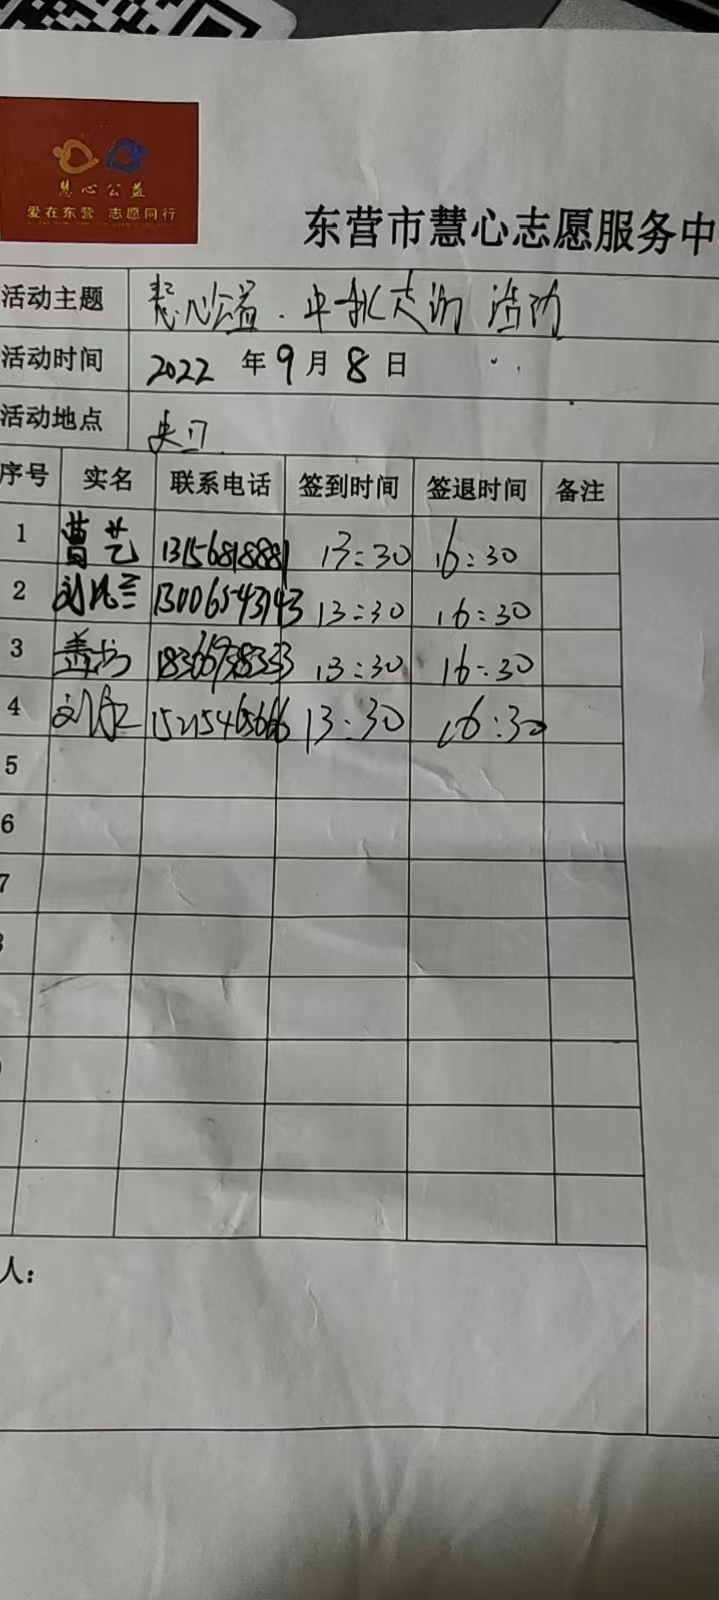 慧心公益
爱在东营 志愿同行
东营市慧心志愿服务中
活动主题 慧心公益.中秋走访 活动
活动时间 2022 年 9 月 8 日
活动地点
序号 实名 联系电话 签到时间 签退时间 备注
1 曹艺 13156818881 13:30 16:30
2 刘风兰 13006543143 13:30 16:30
3 盖 18366938333 13:30 16:30
4 刘 15215465666 13:30 16:30
5
6
7
人：